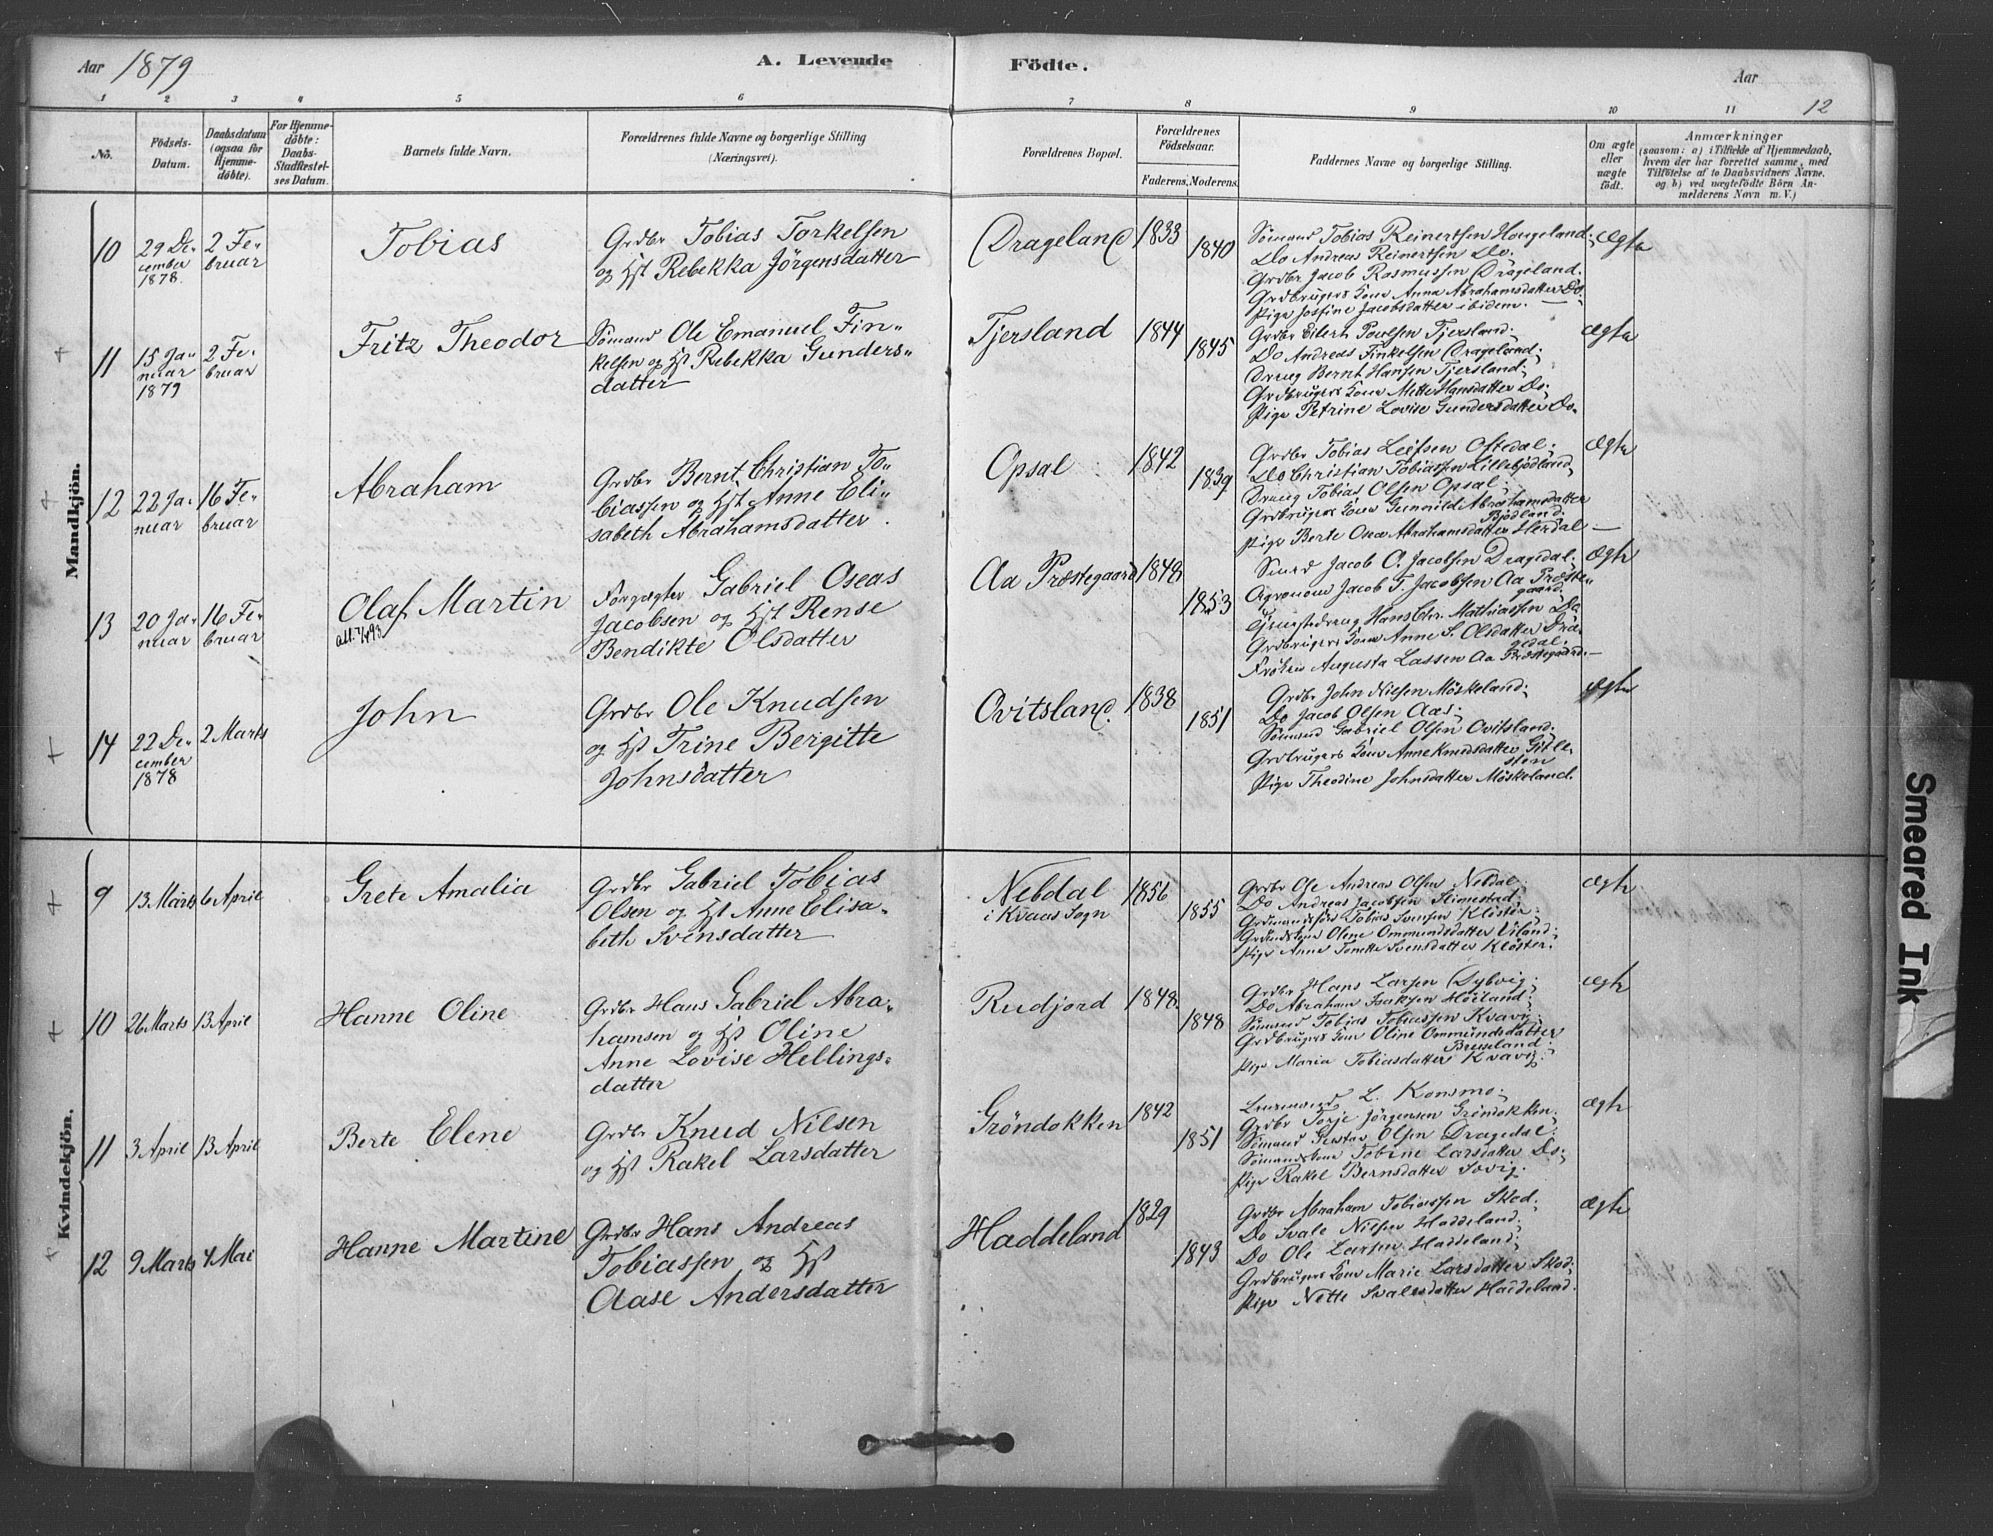 Aar 1879
A. Levende Födte.
Aar
12
1 2 3 4 5 6 7 8 9 10 11
No.
Födsels-Datum.
Daabsdatum (ogsaa for Hjemme-döbte).
For Hjemme-döbte: Daabs-Stadfæstel-ses Datum.
Barnets fulde Navn.
Forældrenes fulde Navne og borgerlige Stilling
(Næringsvei).
Forældrenes Bopæl.
Forældrenes Födselsaar.
Faderens. Moderens.
Faddernes Navne og borgerlige Stilling.
Om ægte eller uægte födt.
Anmærkninger
(saasom: a) i Tilfælde af Hjemmedaab,
hvem der har forrettet samme, med
Tilföielse af to Daabsvidners Navne.
og b) ved uægtefödte Börn An-
melderens Navn m. V.)
Mandkjön.
10
29 De-
cember
1878.
2 Fe-
bruar
Tobias
Grdbr Tobias Torkelsen
og Hst Rebekka Jörgensdatter
Drageland
1833
1840
Sömand Tobias Reinertsen Hougeland;
Do Andreas Reinertsen Do.
Grdbr Jacob Rasmussen Drageland.
Grdbrugers Kone Anna Abrahamsdatter Do.
Pige Josfine Jacobsdatter ibidem.
Ægte
11
15 Ja-
nuar
1879
2 Fe-
bruar
Fritz Theodor
Sömand Ole Emanuel Fin-
kelsen og Hst Rebekka Gunders-
datter
Tjersland
1844
1845
Grdbr Eilert Poulsen Tjersland;
Do Andreas Finkelsen Drageland;
Dreng Bernt Hansen Tjersland;
Grdbrugers Kone Mette Hansdatter Do;
Pige Petrine Lovise Gundersdatter Do.
Ægte
12
22 Ja-
nuar
16 Fe-
bruar
Abraham
Grdbr Bernt Christian To-
biassen og Hst Anne Eli-
sabeth Abrahamsdatter.
Opsal
1842
1839
Grdbr Tobias Leifsen Oftedal;
Do Christian Tobiassen Lillebjödland;
Dreng Tobias Olsen Opsal;
Grdbrugers Kone Gunvild Abrahamsdatter
Bjödland;
Pige Berte Abrahamsdatter Herdal
Ægte
13
20 Ja-
nuar
16 Fe-
bruar
Olaf Martin
Forpagter Gabriel Oseas
Jacobsen og Hst Rense
Bendikte Olsdatter
Aa Præstegaard
1848
1853
Smed Jacob O. Jacobsen Dragedal.
Agronom Jacob T. Jacobsen Aa Præste-
gaard.
Tjenestedreng Hans Chr. Mathiassen Do
Grdbrugers Kone Anne S. Olsdatter Dra-
gedal.
Fröken Augusta Lassen Aa Præstegaard.
Ægte
14
22 De-
cember
1878
2 Marts
John
Grdbr Ole Knudsen
og Hst Trine Bergitte
Johnsdatter
Ovitsland.
1838
1851
Grdbr John Nilsen Möskeland;
Do Jacob Olsen Aas;
Sömand Gabriel Olsen Ovitsland;
Grdbrugers Kone Anne Knudsdatter Gitle-
sten
Pige Theodine Johnsdatter Möskeland.
Ægte
Kvindekjön.
9
13 Marts
6 April
Grete Amalia
Grdbr Gabriel Tobias
Olsen og Hst Anne Elisa-
beth Svensdatter
Nebdal
i Kvaas Sogn
1856
1855
Grdbr Ole Andreas Olsen Nebdal;
Do Andreas Jacobsen Slimestad;
Grdmandsföds Tobias Svensen Klöster;
Grdmdskone Olene Ommundsdatter Viland;
Pige Anne Tonette Svensdatter Klöster.
Ægte
10
26 Marts
13 April
Hanne Oline
Grdbr Hans Gabriel Abra-
hamsen og Hst Oline
Anne Lovise Hellings-
datter
Rudjord
1848.
1848
Grdbr Hans Larsen Dybvig;
Do Abraham Isaksen Hörland;
Sömand Tobias Tobiassen Kvavig;
Grdbrugers Kone Oline Ommundsdatter
Bruseland;
Pige Maria Tobiasdatter Kvavig.
Ægte
11
3 April
13 April
Berte Elene
Grdbr Knud Nilsen
og Hst Rakel Larsdatter
Gröndokken
1842
1851
Lensmand L. Konsmo;
Grdbr Torje Jörgensen Gröndokken.
Sömand Gustav Olsen Dragedal.
Sömandskone Tobine Larsdatter Do;
Pige Rakel Berntsdatter Sövig.
Ægte
12
9 Marts
4 Mai
Hanne Martine
Grdbr Hans Andreas
Tobiassen og Hst
Aase Andersdatter
Haddeland
1829
1843
Grdbr Abraham Tobiassen Skod.
Do Svale Nilsen Haddeland;
Do Ole Larsen Haddeland;
Grdbrugers Kone Marie Larsdatter Skod;
Pige Nette Svalesdatter Haddeland.
Ægte
Smeared Ink